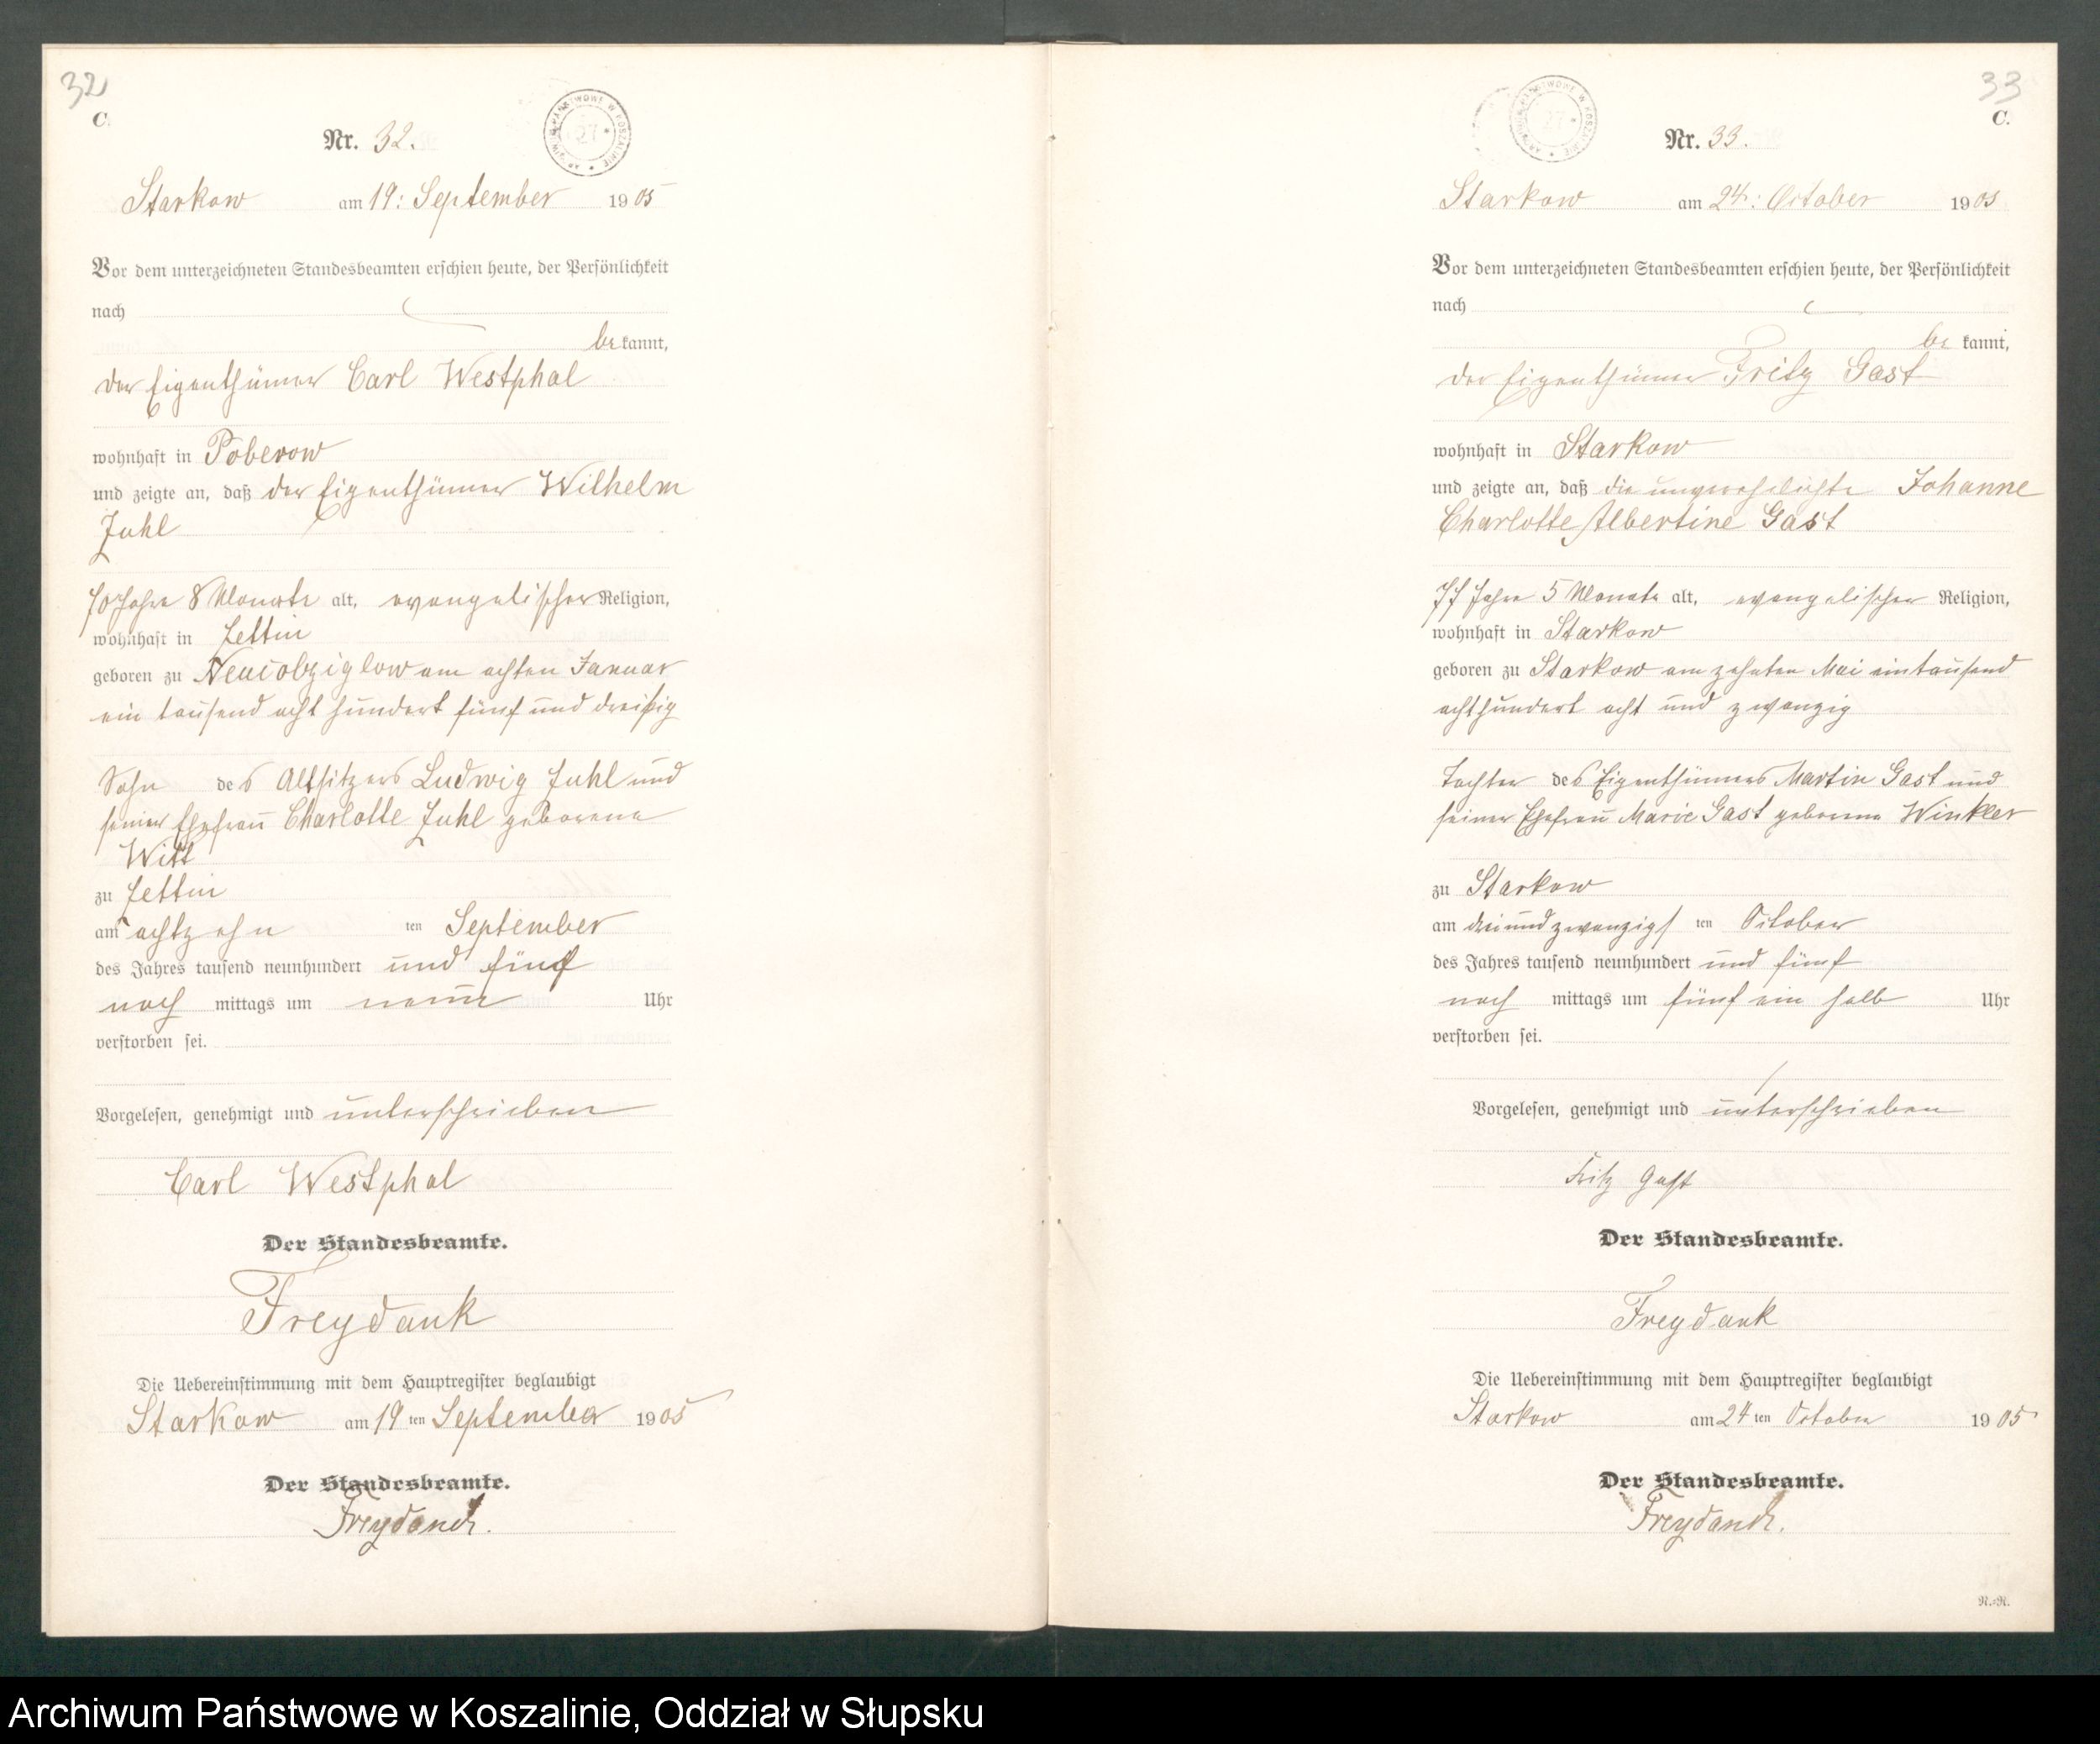 32
C.
Nr. 32.
ARCHIWUM PAŃSTWOWE W KOSZALINIE
27
Starkow am 19: September 1905
Vor dem unterzeichneten Standesbeamten erschien heute, der Persönlichkeit
nach
bekannt,
der Eigenthümer Carl Westphal
wohnhaft in Poberow
und zeigte an, daß der Eigenthümer Wilhelm
Juhl
70 Jahre 8 Monate alt, evangelischer Religion,
wohnhaft in Zettin
geboren zu Neucolziglow am achten Januar
ein tausend acht hundert fünf und dreißig
Sohn des Altsitzers Ludwig Juhl und
seiner Ehefrau Charlotte Juhl geborene
Witt
zu Zettin
am achtzehn ten September
des Jahres tausend neunhundert und fünf
nach mittags um neun Uhr
verstorben sei.
Vorgelesen, genehmigt und unterschrieben
Carl Westphal
Der Standesbeamte.
Freydank
Die Uebereinstimmung mit dem Hauptregister beglaubigt
Starkow am 19 ten September 1905
Der Standesbeamte.
Freydank.
33
C.
Nr. 33.
ARCHIWUM PAŃSTWOWE W KOSZALINIE
27
Starkow am 24: October 1905
Vor dem unterzeichneten Standesbeamten erschien heute, der Persönlichkeit
nach
be kannt,
der Eigenthümer Fritz Gast
wohnhaft in Starkow
und zeigte an, daß die unverehelichte Johanne
Charlotte Albertine Gast
77 Jahre 5 Monate alt, evangelischer Religion,
wohnhaft in Starkow
geboren zu Starkow am zehnten Mai eintausend
achthundert acht und zwanzig
Tochter des Eigenthümers Martin Gast und
seiner Ehefrau Marie Gast geborene Winkler
zu Starkow
am dreiundzwanzigs ten October
des Jahres tausend neunhundert und fünf
nach mittags um fünf ein halb Uhr
verstorben sei.
Vorgelesen, genehmigt und unterschrieben
Fritz Gast
Der Standesbeamte.
Freydank
Die Uebereinstimmung mit dem Hauptregister beglaubigt
Starkow am 24 ten October 1905
Der Standesbeamte.
Freydank.
N.=N.
Archiwum Państwowe w Koszalinie, Oddział w Słupsku